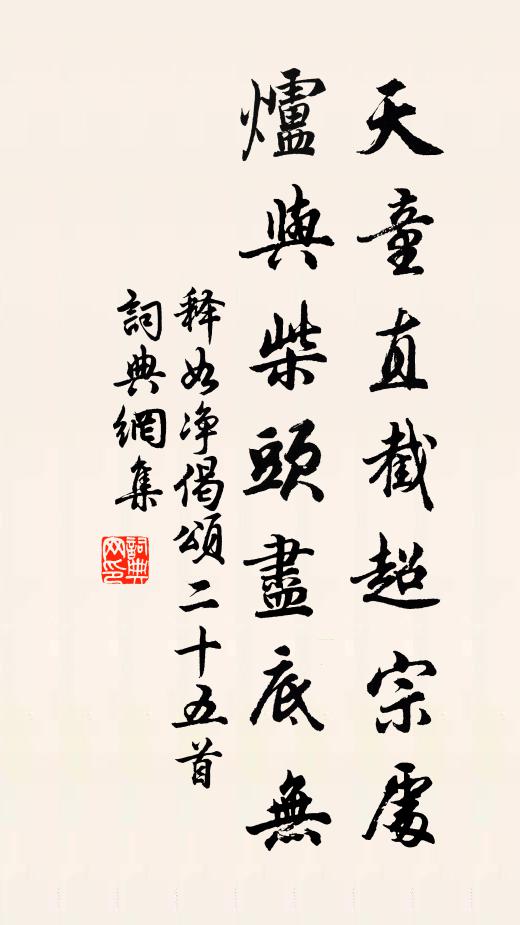 天童直截超宗處
爐與柴頭盡底無
释如净偈頌二十五首
詞典網集
詞典
网印